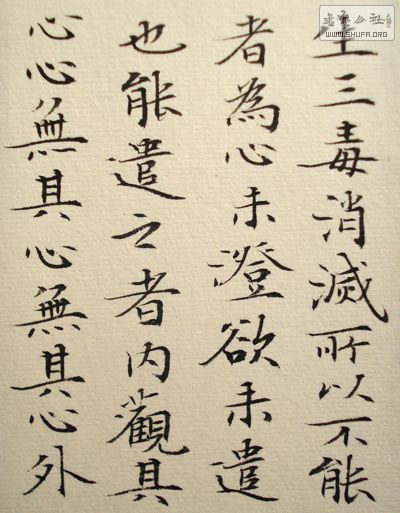 生三毒消滅所以不能
者為心未澄欲未遣
也能遣之者内觀其
心心無其心無其心外
書法公社
WWW.SHUFA.ORG